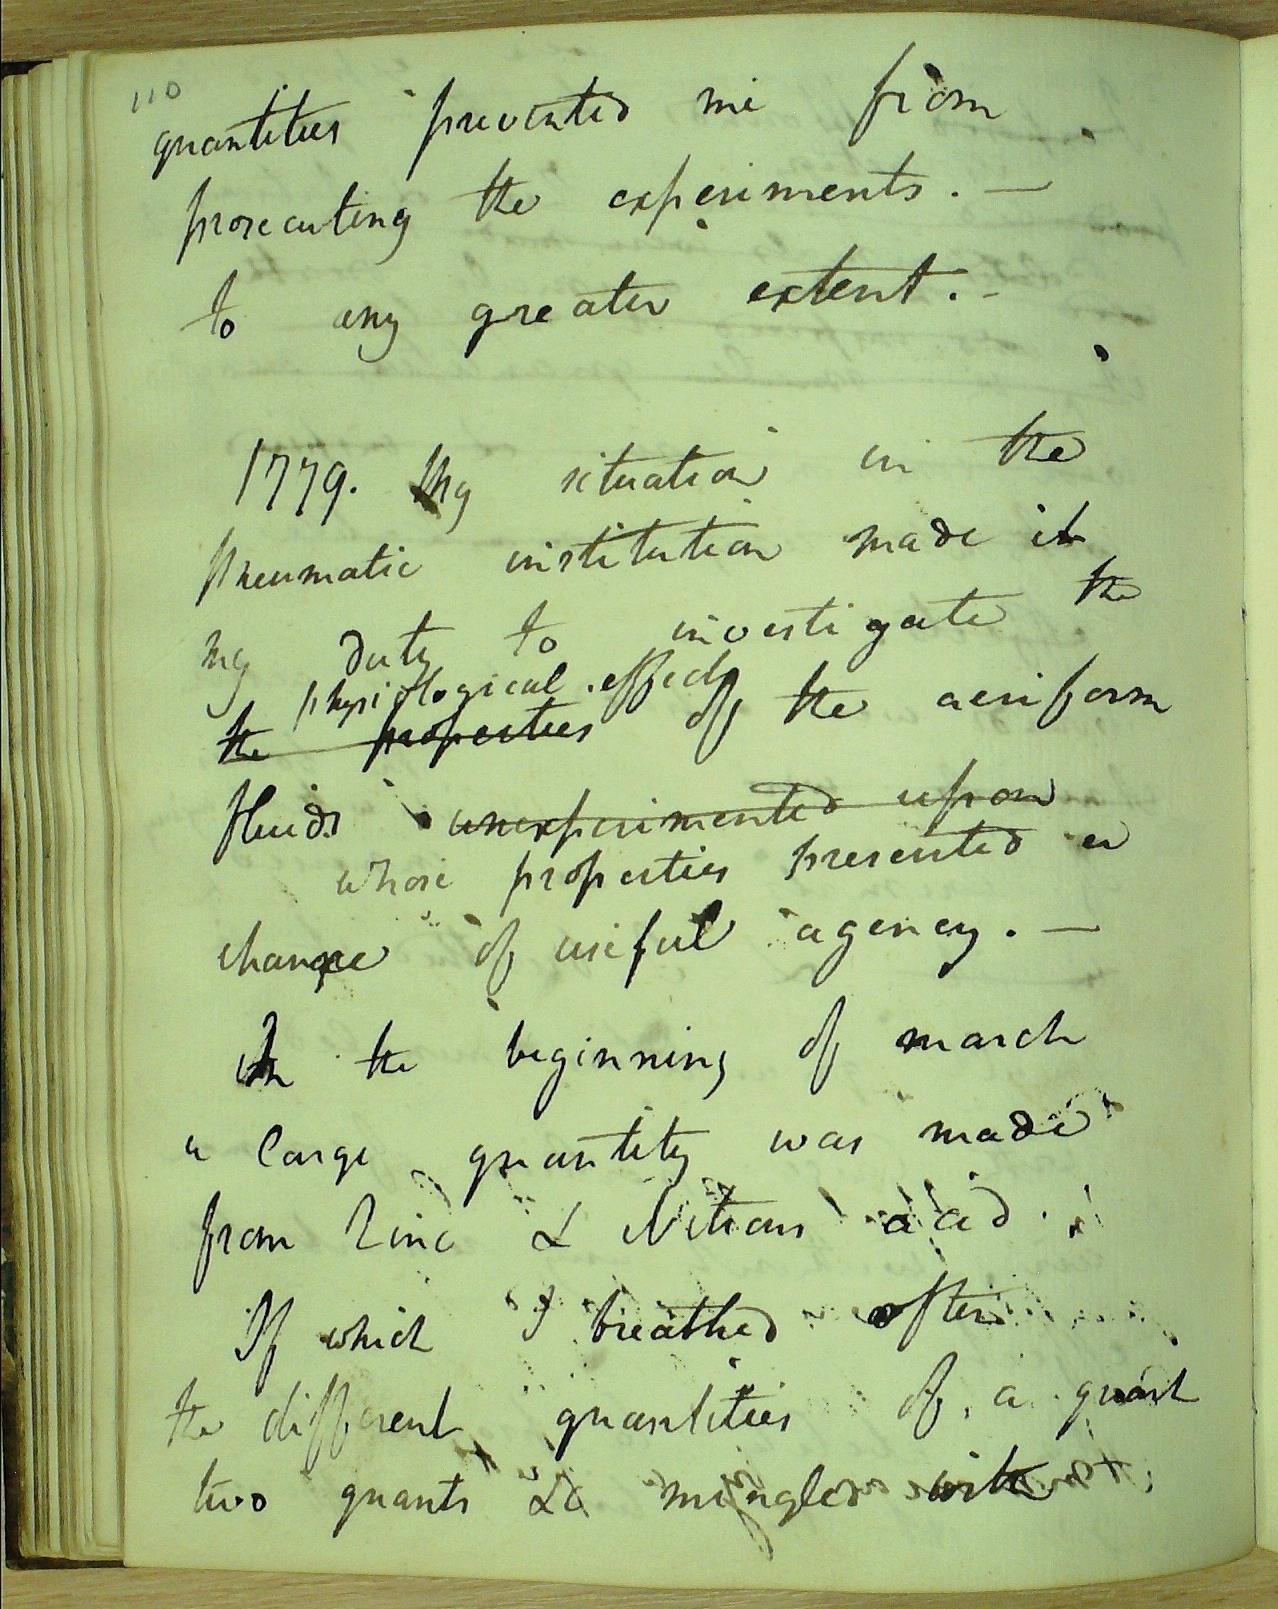 110
quantities prevented me from
prosecuting the experiments. —
to any greater extent. -
1779. My situation in the
Pneumatic institution made it
my duty to investigate the
physiological effects
the properties of the aeriform
fluids unexperimented upon
whose properties presented a
chance of useful agency. —
In the beginning of march
a large quantity was made
from Zinc & Nitrous acid.
Of which I breathed often
the different quantities of a quart
two quarts &c mingled with